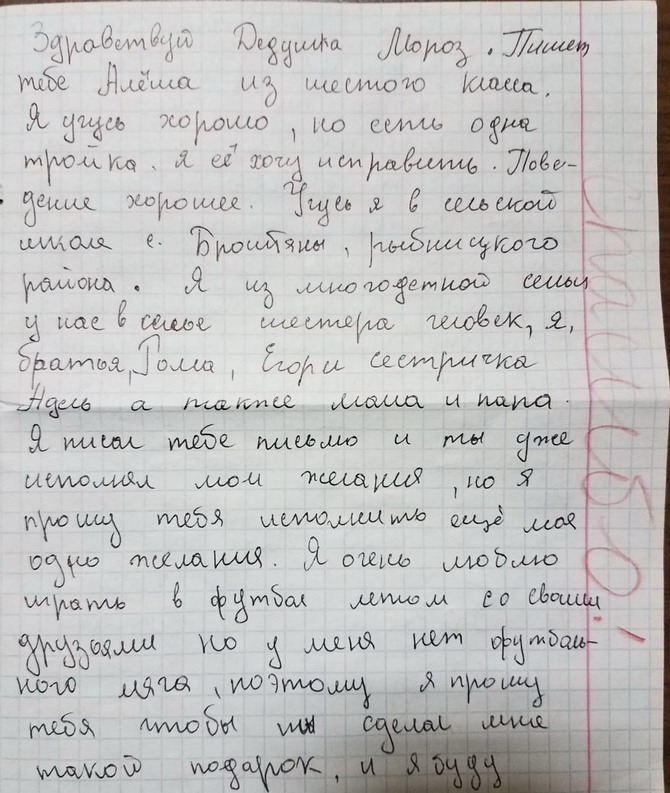 Здравствуй Дедушка Мороз. Пишет
тебе Алёша из шестого класса.
Я учусь хорошо, но есть одна
тройка. я её хочу исправить. Пове-
дение хорошее. Учусь я в сельской
школе с. Броштяны, рыбницкого
района. Я из многодетной семьи
у нас в семье шестера человек, я,
братья, Рома, Егор и сестричка
Адель а также мама и папа.
Я писал тебе письмо и ты уже
исполнял мои желания, но я
прошу тебя исполнить ещё моя
одно желания. Я очень люблю
играть в футбол летом со своими
друзьями но у меня нет футболь-
ного мяча, поэтому я прошу
тебя чтобы ты сделал мне
такой подарок, и я буду
спасибо!